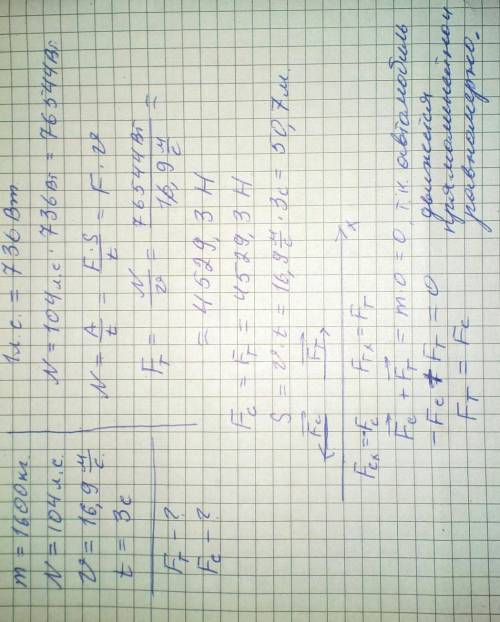 m = 1600 кг.
N = 104 л.с.
v = 16,9 м/с
t = 3с
Fт - ?
Fс - ?
1 л.с. = 736 Вт
N = 104 л.с. · 736 Вт = 76544 Вт.
N = A/t = F·S/t = F · v
Fт = N/v = 76544 Вт / 16,9 м/с =
= 4529,3 Н
Fс = Fт = 4529,3 Н
S = v · t = 16,9 м/с · 3с = 50,7 м.
Fс Fт
x
Fсx = -Fс Fтx = Fт
Fс + Fт = m · 0 = 0, т.к. автомобиль
движется
прямолинейно и
равномерно.
-Fс + Fт = 0
Fт = Fс